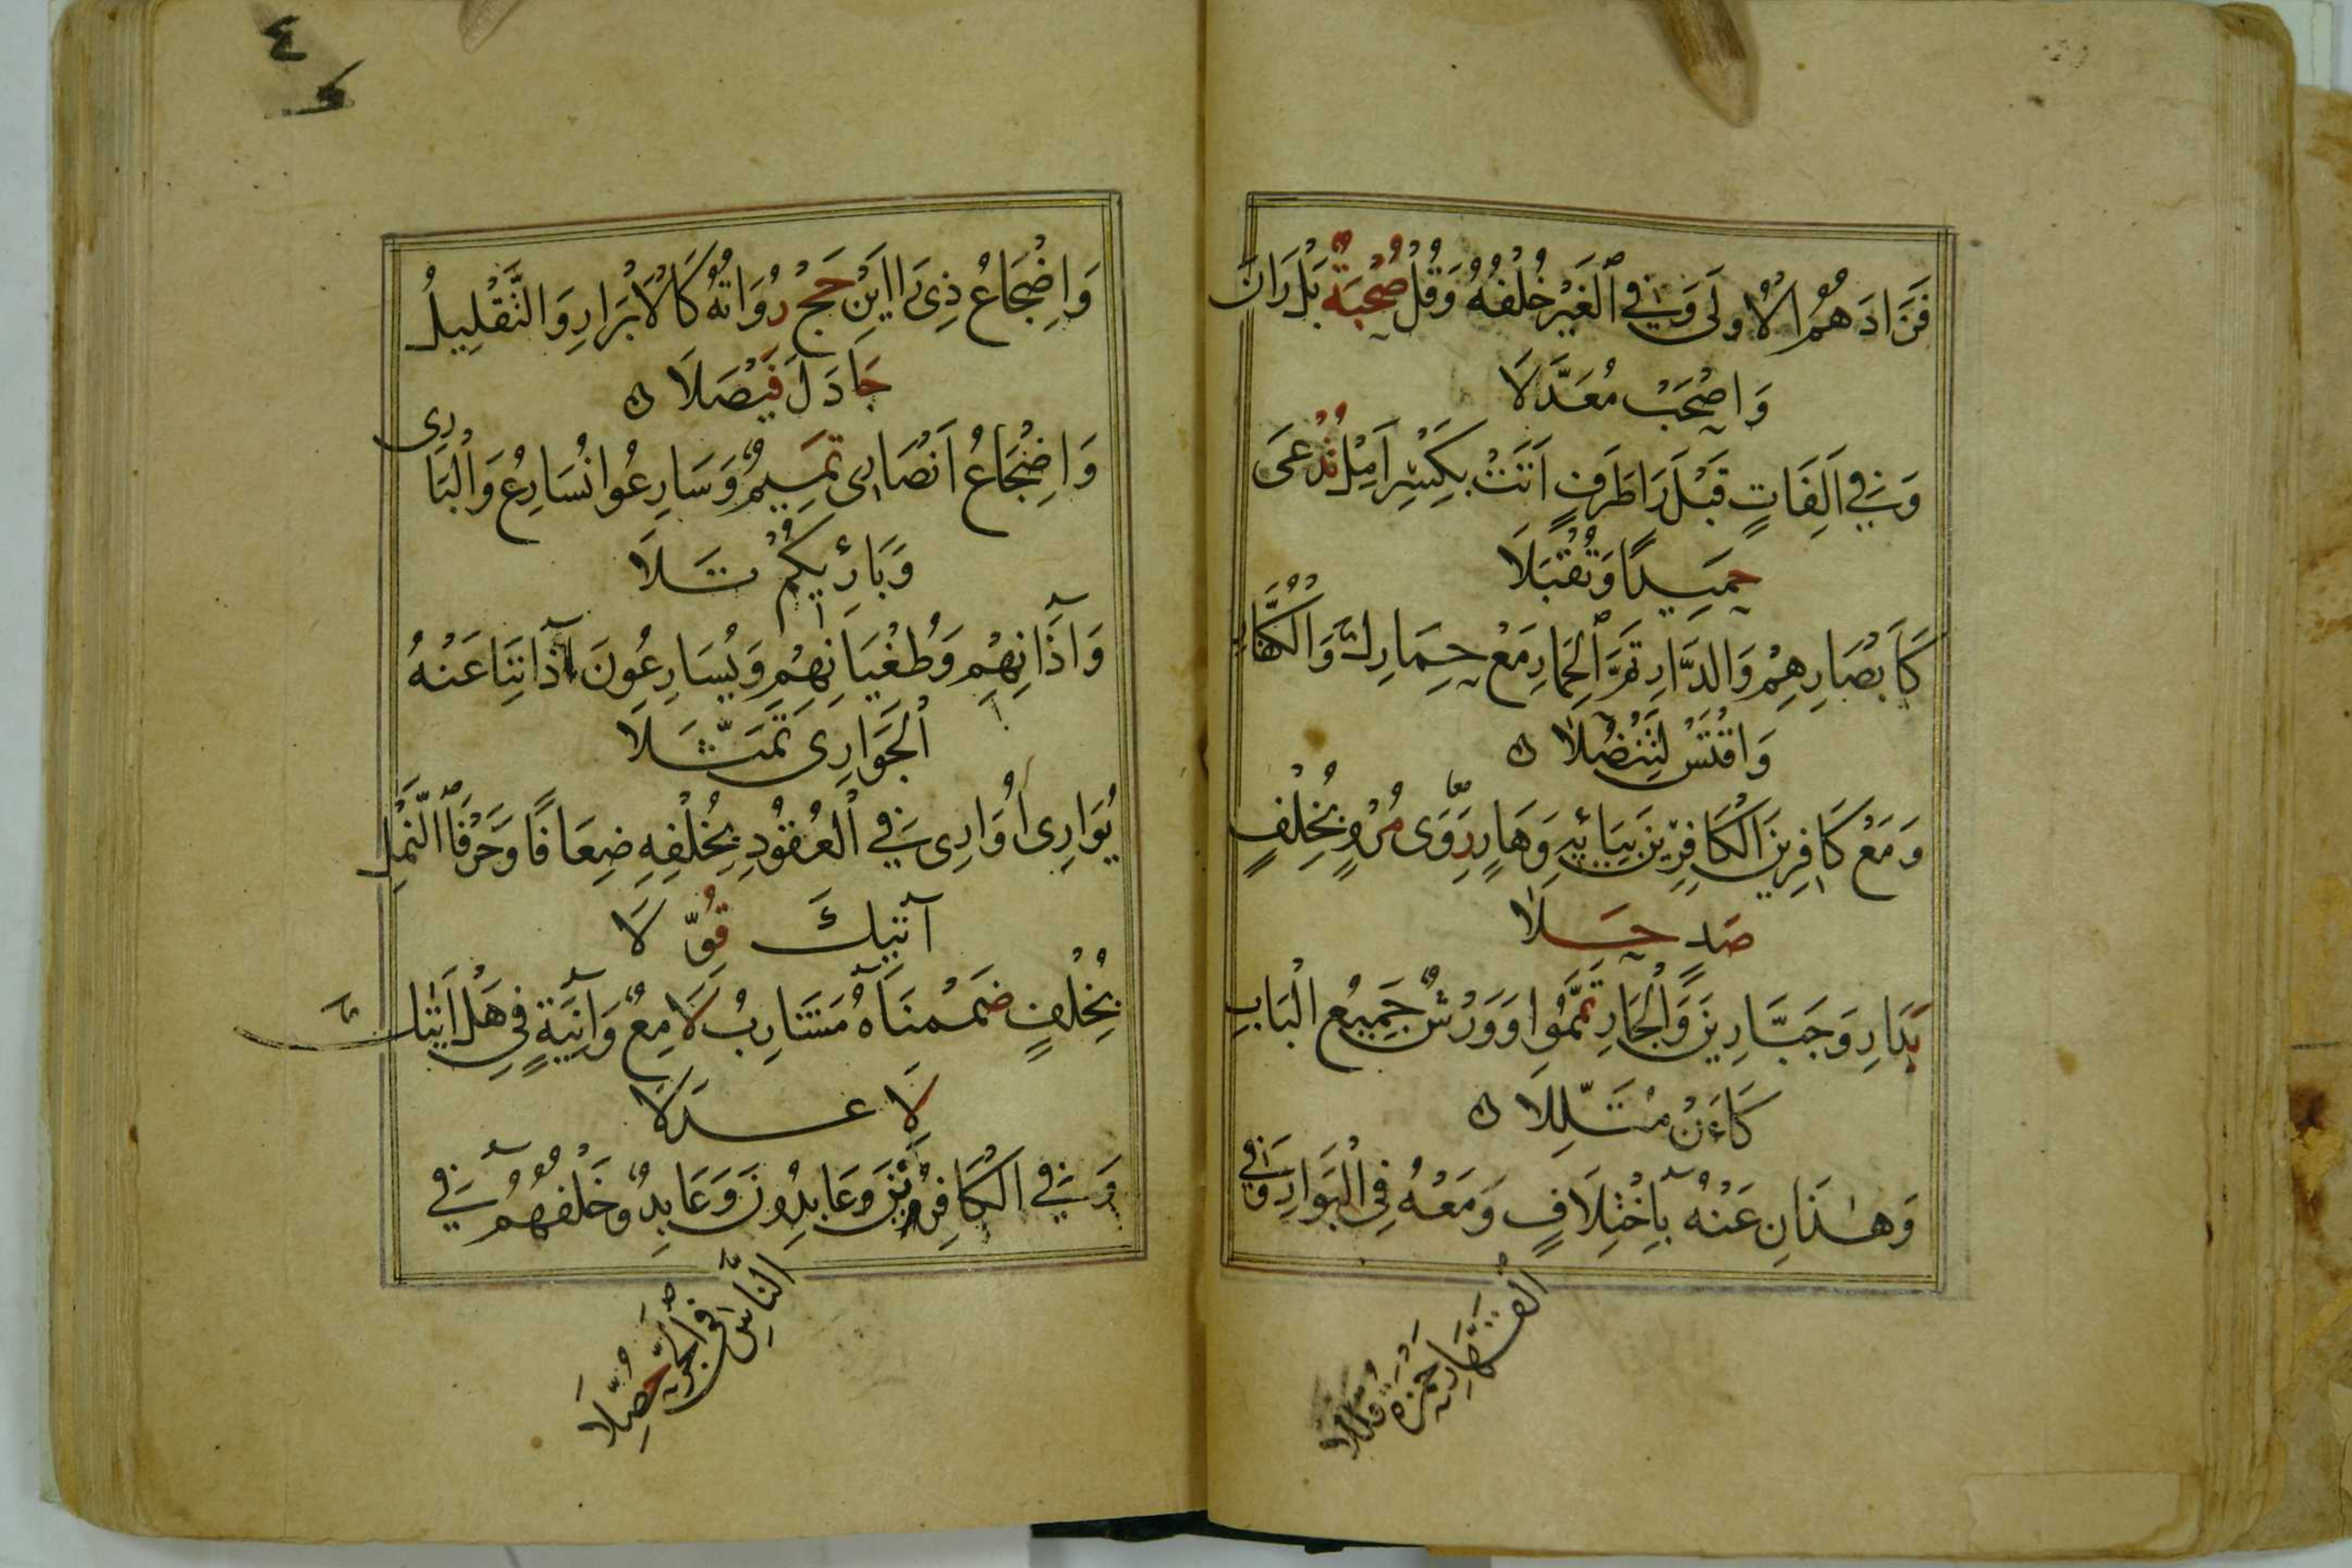 فَزَادَهُمُ الْأُولَى وَفِي الْغَيْرِ خُلْفُهُ وَقُلْ صُحْبَةٌ بَلْ رَانَ
وَاصْحَبْ مُعَدَّلَا
وَفِي أَلِفَاتٍ قَبْلَ رَا طَرَفٍ أَتَتْ بِكَسْرٍ أَمِلْ تُدْعَى
حَمِيدًا وَتُقْبَلَا
كَأَبْصَارِهِمْ وَالدَّارِ ثُمَّ الْحِمَارِ مَعْ حِمَارِكَ وَالْكُفَّارِ
وَاقْتَسْ لِتَنْضُلَا
وَمَعْ كَافِرِينَ الْكَافِرِينَ بِيَائِهِ وَهَارٍ رَوَى مُرْوٍ بِخُلْفٍ
صَدٍ حَلَا
بَدَارِ وَجَبَّارِينَ وَالْجَارِ تَمَّمُوا وَوَرْشٌ جَمِيعَ الْبَابِ
كَانَ مُقَلِّلَا
وَهٰذَانِ عَنْهُ بِاخْتِلَافٍ وَمَعْهُ فِي الْبَوَارِ وَفِي
الْقَهَّارِ حَمْزَةُ قَلَّلَا
٤
وَإِضْجَاعُ ذِي رَاأَيْنِ حَجَّ رُوَاتُهُ كَالْأَبْرَارِ وَالتَّقْلِيلُ
جَادَلَ فَيْصَلَا
وَإِضْجَاعُ أَنْصَارِي تَمِيمٌ وَسَارِعُوا نُسَارِعُ وَالْبَارِي
وَبَارِئِكُمْ تَلَا
وَآذَانِهِمْ وَطُغْيَانِهِمْ وَيُسَارِعُونَ آذَانِنَا عَنْهُ
الْجَوَارِي تَمَثَّلَا
يُوَارِي أُوَارِي فِي الْعُقُودِ بِخُلْفِهِ ضِعَافًا وَحَرْفَا النَّمْلِ
آتِيكَ قُوِّلَا
بِخُلْفٍ ضَمَمْنَاهُ مَشَارِبُ لَامِعٌ وَآنِيَةٍ فِي هَلْ أَتَاكَ
لِأَعْدَلَا
وَفِي الْكَافِرُونَ عَابِدُونَ وَعَابِدٌ وَخُلْفُهُمُ فِي
النَّاسِ فِي الْجَرِّ حُصِّلَا